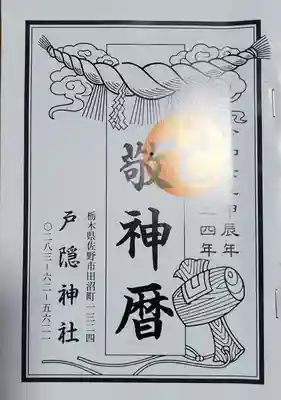 甲辰年
四年
敬神暦
栃木県佐野市田沼町一三二四
戸隠神社
〇二八三−六二−五六二一